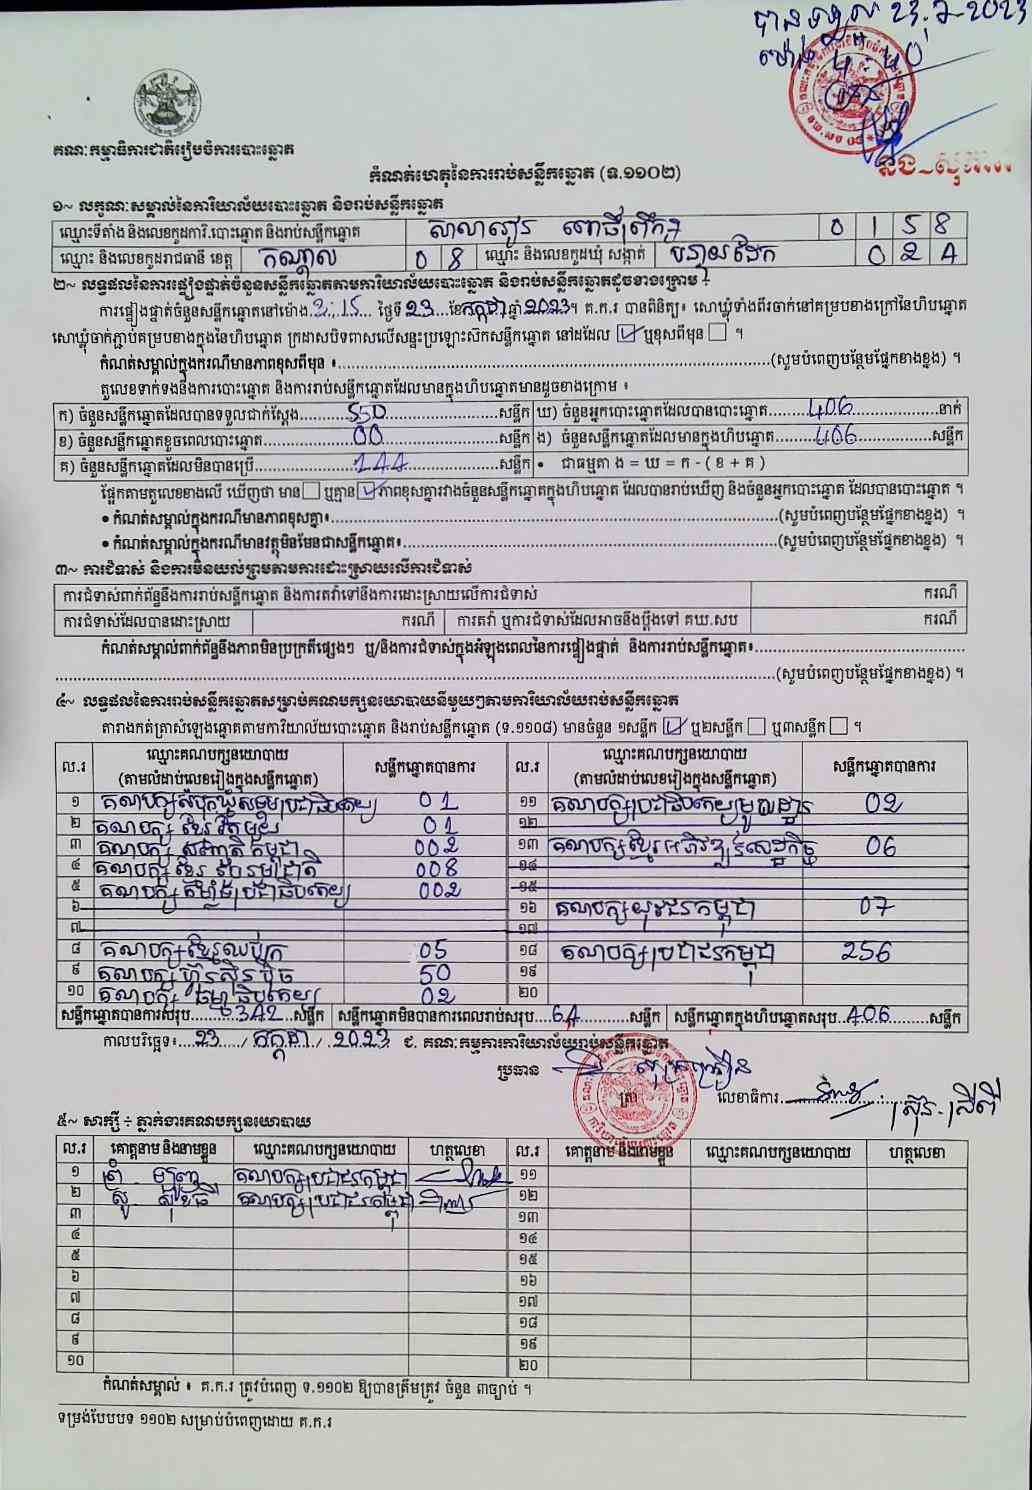 បានទទួល 23.7.2023
ម៉ោង 4:40
គណៈកម្មាធិការជាតិរៀបចំការបោះឆ្នោត
កំណត់ហេតុនៃការរាប់សន្លឹកឆ្នោត (ទ.១១០២)
១~ លក្ខណៈសម្គាល់នៃការិយាល័យបោះឆ្នោត និងរាប់សន្លឹកឆ្នោត
ឈ្មោះទីតាំង និងលេខកូដការិ.បោះឆ្នោត និងរាប់សន្លឹកឆ្នោត សាលារៀន ពោធិ៍ព្រឹក្ស 0 1 5 8
ឈ្មោះ និងលេខកូដរាជធានី ខេត្ត កណ្តាល 0 8 ឈ្មោះ និងលេខកូដឃុំ សង្កាត់ បន្ទាយដែក 0 2 4
២~ លទ្ធផលនៃការផ្ទៀងផ្ទាត់ចំនួនសន្លឹកឆ្នោតតាមការិយាល័យបោះឆ្នោត និងរាប់សន្លឹកឆ្នោតដូចខាងក្រោម ÷
ការផ្ទៀងផ្ទាត់ចំនួនសន្លឹកឆ្នោតនៅម៉ោង 3:15 ថ្ងៃទី 23 ខែ កក្កដា ឆ្នាំ 2023 ។ គ.ក.រ បានពិនិត្យ៖ សោឃ្លុំទាំងពីរចាក់នៅគម្របខាងក្រៅនៃហិបឆ្នោត
សោឃ្លុំចាក់ភ្ជាប់គម្របខាងក្នុងនៃហិបឆ្នោត ក្រដាសបិទពាសលើសន្ទះប្រឡោះស៊កសន្លឹកឆ្នោត នៅដដែល ☑ ឬខុសពីមុន ☐ ។
កំណត់សម្គាល់ក្នុងករណីមានភាពខុសពីមុន ៖ (សូមបំពេញបន្ថែមផ្នែកខាងខ្នង) ។
តួលេខទាក់ទងនឹងការបោះឆ្នោត និងការរាប់សន្លឹកឆ្នោតដែលមានក្នុងហិបឆ្នោតមានដូចខាងក្រោម ៖
ក) ចំនួនសន្លឹកឆ្នោតដែលបានទទួលជាក់ស្តែង 550 សន្លឹក ឃ) ចំនួនអ្នកបោះឆ្នោតដែលបានបោះឆ្នោត 406 នាក់
ខ) ចំនួនសន្លឹកឆ្នោតខូចពេលបោះឆ្នោត 00 សន្លឹក ង) ចំនួនសន្លឹកឆ្នោតដែលមានក្នុងហិបឆ្នោត 406 សន្លឹក
គ) ចំនួនសន្លឹកឆ្នោតដែលមិនបានប្រើ 144 សន្លឹក • ជាធម្មតា ង = ឃ = ក - ( ខ + គ )
ផ្អែកតាមតួលេខខាងលើ ឃើញថា មាន ☐ ឬគ្មាន ☑ ភាពខុសគ្នារវាងចំនួនសន្លឹកឆ្នោតក្នុងហិបឆ្នោត ដែលបានរាប់ឃើញ និងចំនួនអ្នកបោះឆ្នោត ដែលបានបោះឆ្នោត ។
• កំណត់សម្គាល់ក្នុងករណីមានភាពខុសគ្នា៖ (សូមបំពេញបន្ថែមផ្នែកខាងខ្នង) ។
• កំណត់សម្គាល់ក្នុងករណីមានវត្ថុមិនមែនជាសន្លឹកឆ្នោត៖ (សូមបំពេញបន្ថែមផ្នែកខាងខ្នង) ។
៣~ ការជំទាស់ និងការមិនយល់ព្រមតាមការដោះស្រាយលើការជំទាស់
ការជំទាស់ពាក់ព័ន្ធនឹងការរាប់សន្លឹកឆ្នោត និងការតវ៉ាទៅនឹងការដោះស្រាយលើការជំទាស់ ករណី
ការជំទាស់ដែលបានដោះស្រាយ ករណី ការតវ៉ា ឬការជំទាស់ដែលអាចនឹងប្តឹងទៅ គឃ.សប ករណី
កំណត់សម្គាល់ពាក់ព័ន្ធនឹងភាពមិនប្រក្រតីផ្សេងៗ ឬ/និងការជំទាស់ក្នុងអំឡុងពេលនៃការផ្ទៀងផ្ទាត់ និងការរាប់សន្លឹកឆ្នោត៖
(សូមបំពេញបន្ថែមផ្នែកខាងខ្នង) ។
៤~ លទ្ធផលនៃការរាប់សន្លឹកឆ្នោតសម្រាប់គណបក្សនយោបាយនីមួយៗតាមការិយាល័យរាប់សន្លឹកឆ្នោត
តារាងកត់ត្រាសំឡេងឆ្នោតតាមការិយាល័យបោះឆ្នោត និងរាប់សន្លឹកឆ្នោត (ទ.១១០៨) មានចំនួន ១សន្លឹក ☑ ឬ២សន្លឹក ☐ ឬ៣សន្លឹក ☐ ។
ល.រ ឈ្មោះគណបក្សនយោបាយ (តាមលំដាប់លេខរៀងក្នុងសន្លឹកឆ្នោត) សន្លឹកឆ្នោតបានការ ល.រ ឈ្មោះគណបក្សនយោបាយ (តាមលំដាប់លេខរៀងក្នុងសន្លឹកឆ្នោត) សន្លឹកឆ្នោតបានការ
១ គណបក្សសំបុកឃ្មុំសង្គមប្រជាធិបតេយ្យ 01 ១១ គណបក្សប្រជាធិបតេយ្យមូលដ្ឋាន 02
២ គណបក្ស ខ្មែររួបរួម 01 ១២
៣ គណបក្ស សញ្ជាតិកម្ពុជា 002 ១៣ គណបក្សខ្មែរអភិវឌ្ឍន៍សេដ្ឋកិច្ច 06
៤ គណបក្សខ្មែរ រួបរួមជាតិ 008 ១៤
៥ គណបក្ស កម្លាំងប្រជាធិបតេយ្យ 002 ១៥
៦ ១៦ គណបក្សយុវជនកម្ពុជា 07
៧ ១៧
៨ គណបក្សខ្មែរឈប់ក្រ 05 ១៨ គណបក្សប្រជាជនកម្ពុជា 256
៩ គណបក្ស ហ៊្វុនស៊ិនប៉ិច 50 ១៩
១០ គណបក្ស ធម្មាធិបតេយ្យ 02 ២០
សន្លឹកឆ្នោតបានការសរុប 342 សន្លឹក សន្លឹកឆ្នោតមិនបានការពេលរាប់សរុប 64 សន្លឹក សន្លឹកឆ្នោតក្នុងហិបឆ្នោតសរុប 406 សន្លឹក
កាលបរិច្ឆេទ៖ 23 / កក្កដា / 2023 ជ. គណៈកម្មការការិយាល័យរាប់សន្លឹកឆ្នោត
ប្រធាន
ត្រា
លេខាធិការ
៥~ សាក្សី ÷ ភ្នាក់ងារគណបក្សនយោបាយ
ល.រ គោត្តនាម និងនាមខ្លួន ឈ្មោះគណបក្សនយោបាយ ហត្ថលេខា ល.រ គោត្តនាម និងនាមខ្លួន ឈ្មោះគណបក្សនយោបាយ ហត្ថលេខា
១ គណបក្សប្រជាជនកម្ពុជា ១១
២ គណបក្សប្រជាជនកម្ពុជា ១២
៣ ១៣
៤ ១៤
៥ ១៥
៦ ១៦
៧ ១៧
៨ ១៨
៩ ១៩
១០ ២០
កំណត់សម្គាល់ ៖ គ.ក.រ ត្រូវបំពេញ ទ.១១០២ ឱ្យបានត្រឹមត្រូវ ចំនួន ៣ច្បាប់ ។
ទម្រង់បែបបទ ១១០២ សម្រាប់បំពេញដោយ គ.ក.រ